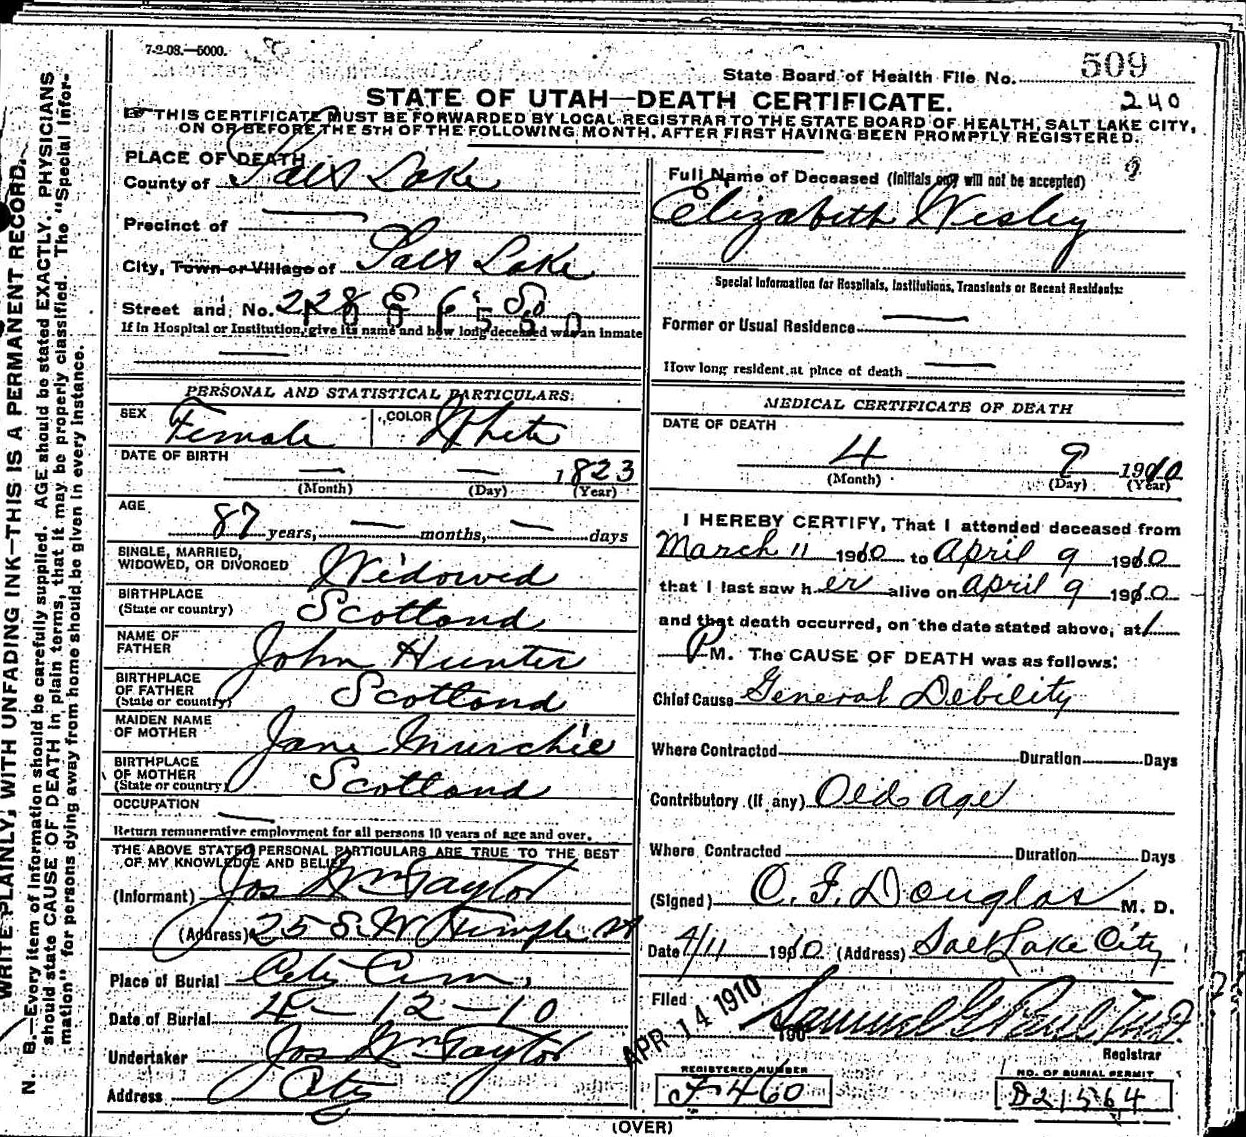 7-2-08.—5000.
State Board of Health File No. 509
STATE OF UTAH—DEATH CERTIFICATE.
240
THIS CERTIFICATE MUST BE FORWARDED BY LOCAL REGISTRAR TO THE STATE BOARD OF HEALTH, SALT LAKE CITY,
ON OR BEFORE THE 5TH OF THE FOLLOWING MONTH, AFTER FIRST HAVING BEEN PROMPTLY REGISTERED.
PLACE OF DEATH
County of Salt Lake
Precinct of —
City, Town or Village of Salt Lake
Street and No. 228 E 6 So
If in Hospital or Institution, give its name and how long deceased was an inmate
—
PERSONAL AND STATISTICAL PARTICULARS:
SEX Female COLOR White
DATE OF BIRTH — — 1823
(Month) (Day) (Year)
AGE 87 years, — months, — days
SINGLE, MARRIED,
WIDOWED, OR DIVORCED Widowed
BIRTHPLACE
(State or country) Scotland
NAME OF
FATHER John Hunter
BIRTHPLACE
OF FATHER
(State or country) Scotland
MAIDEN NAME
OF MOTHER Jane Murchie
BIRTHPLACE
OF MOTHER
(State or country) Scotland
OCCUPATION —
Return remunerative employment for all persons 10 years of age and over.
THE ABOVE STATED PERSONAL PARTICULARS ARE TRUE TO THE BEST
OF MY KNOWLEDGE AND BELIEF
(Informant) Jos Wm Taylor
(Address) 25 S. W Temple St
Place of Burial City Cem,
Date of Burial 4-12-10
Undertaker Jos Wm Taylor
Address City
Full Name of Deceased (Initials only will not be accepted)
Elizabeth Wesley
Special Information for Hospitals, Institutions, Transients or Recent Residents:
Former or Usual Residence —
How long resident at place of death —
MEDICAL CERTIFICATE OF DEATH
DATE OF DEATH
4 9 1910
(Month) (Day) (Year)
I HEREBY CERTIFY, That I attended deceased from
March 11 1910 to April 9 1910
that I last saw her alive on April 9 1910
and that death occurred, on the date stated above, at 1
P M. The CAUSE OF DEATH was as follows:
Chief Cause General Debility
Where Contracted Duration Days
Contributory (If any) Old Age
Where Contracted Duration Days
(Signed) C. F. Douglas M. D.
Date 4/11 1910 (Address) Salt Lake City
Filed APR 14 1910 190 Samuel G. Paul M.D.
Registrar
REGISTERED NUMBER
F 460
NO. OF BURIAL PERMIT
D21564
(OVER)
WRITE PLAINLY, WITH UNFADING INK—THIS IS A PERMANENT RECORD.
N. B.—Every item of information should be carefully supplied. AGE should be stated EXACTLY. PHYSICIANS
should state CAUSE OF DEATH in plain terms, that it may be properly classified. The "Special Infor-
mation" for persons dying away from home should be given in every instance.